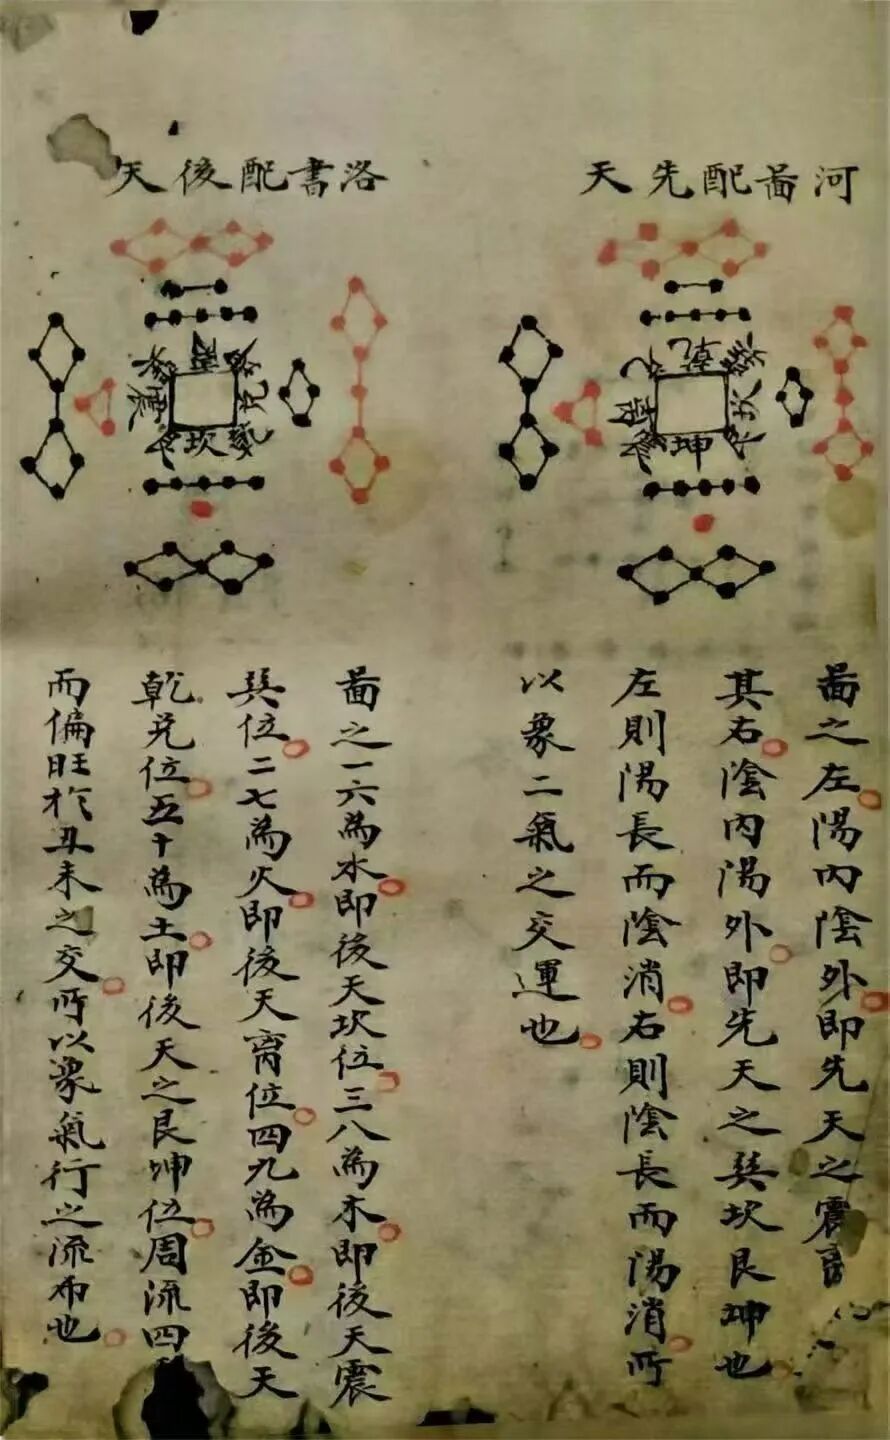 河啚配先天
乾
坎
坤
啚之左陽內陰外即先天之震
其右陰內陽外即先天之巽坎艮坤也
左則陽長而陰消右則陰長而陽消所
以象二氣之交運也
洛書配後天
兌
坎
震
啚之一六為水即後天坎位三八為木即後天震
巽位二七為火即後天离位四九為金即後天
乾兌位五十為土即後天之艮坤位周流四
而偏旺於丑未之交所以象氣行之流布也